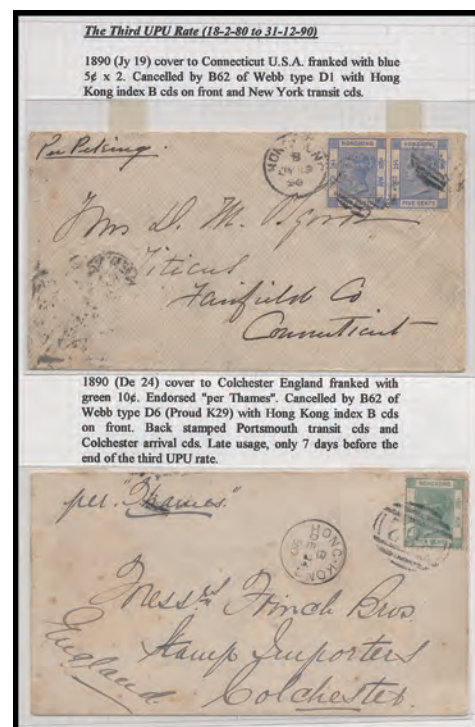 The Third UPU Rate (18-2-80 to 31-12-90)
1890 (Jy 19) cover to Connecticut U.S.A. franked with blue
5¢ x 2. Cancelled by B62 of Webb type D1 with Hong
Kong index B cds on front and New York transit cds.
Per Peking.
HONG KONG
B
JY 19
90
HONG KONG HONG KONG
FIVE CENTS FIVE CENTS
Mrs D. M.
Titicus
Fairfield Co
Connecticut
1890 (De 24) cover to Colchester England franked with
green 10¢. Endorsed "per Thames". Cancelled by B62 of
Webb type D6 (Proud K29) with Hong Kong index B cds
on front. Back stamped Portsmouth transit cds and
Colchester arrival cds. Late usage, only 7 days before the
end of the third UPU rate.
per "Thames."
HONG KONG
TEN CENTS
HONG-KONG
B
DE 24
90
Messrs Finch Bros.
Stamp Importers
Colchester
England